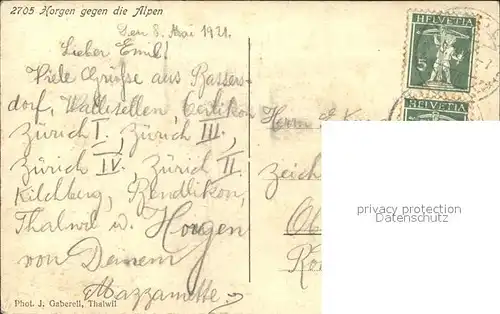 2705 Horgen gegen die Alpen
Den 8. Mai 1921.
Lieber Emil!
Viele Grüsse aus Bassers-
dorf, Wallisellen, Oerlikon
Zürich I, Zürich III,
Zürich IV, Zürich II.
Kilchberg, Bendlikon,
Thalwil u. Horgen
von Deinem
Phot. J. Gaberell, Thalwil
HELVETIA
5
HELVETIA
Herrn E.
Zeich
privacy protection
Datenschutz